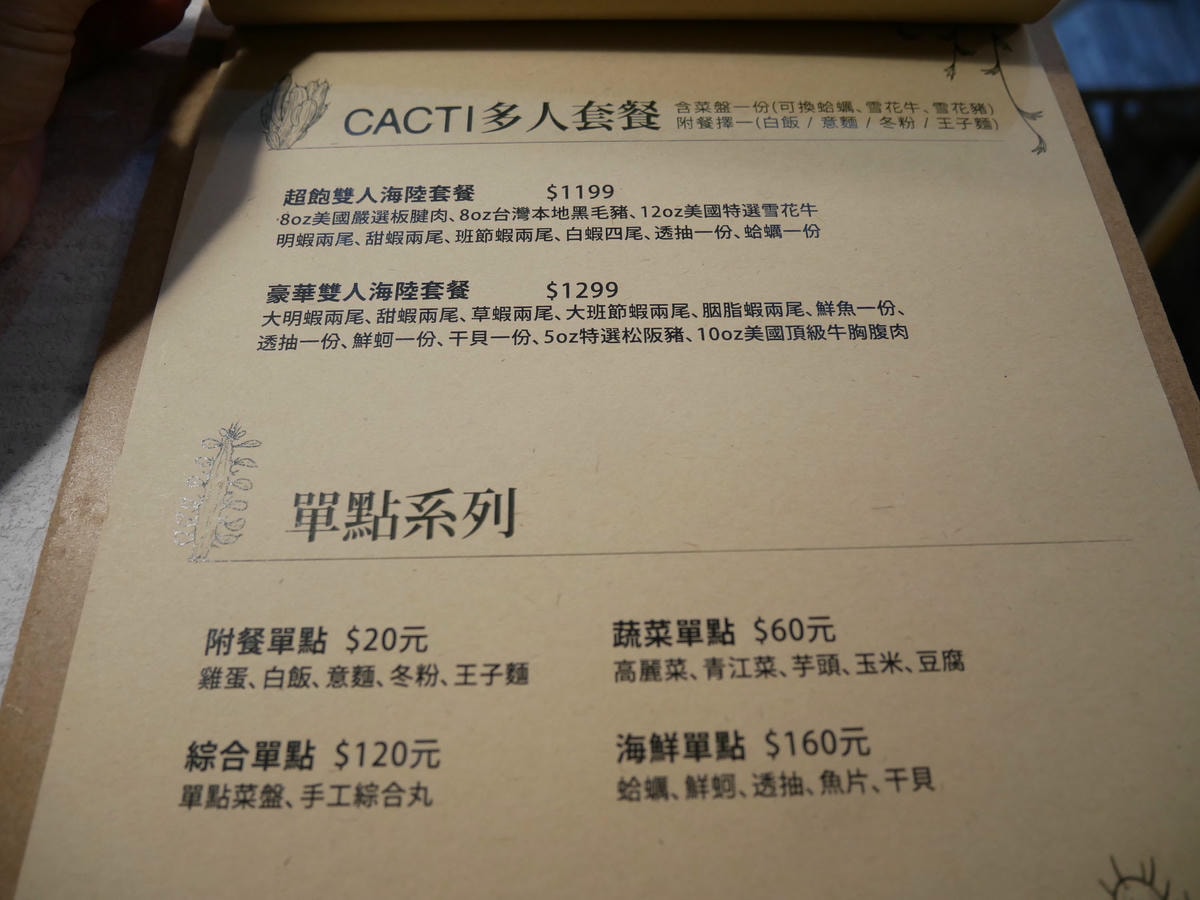 CACTI多人套餐 含菜盤一份(可換蛤蠣、雪花牛、雪花豬)
附餐擇一(白飯 / 意麵 / 冬粉 / 王子麵)
超飽雙人海陸套餐 $1199
8oz美國嚴選板腱肉、8oz台灣本地黑毛豬、12oz美國特選雪花牛
明蝦兩尾、甜蝦兩尾、班節蝦兩尾、白蝦四尾、透抽一份、蛤蠣一份
豪華雙人海陸套餐 $1299
大明蝦兩尾、甜蝦兩尾、草蝦兩尾、大班節蝦兩尾、胭脂蝦兩尾、鮮魚一份、
透抽一份、鮮蚵一份、干貝一份、5oz特選松阪豬、10oz美國頂級牛胸腹肉
單點系列
附餐單點 $20元
雞蛋、白飯、意麵、冬粉、王子麵
蔬菜單點 $60元
高麗菜、青江菜、芋頭、玉米、豆腐
綜合單點 $120元
單點菜盤、手工綜合丸
海鮮單點 $160元
蛤蠣、鮮蚵、透抽、魚片、干貝